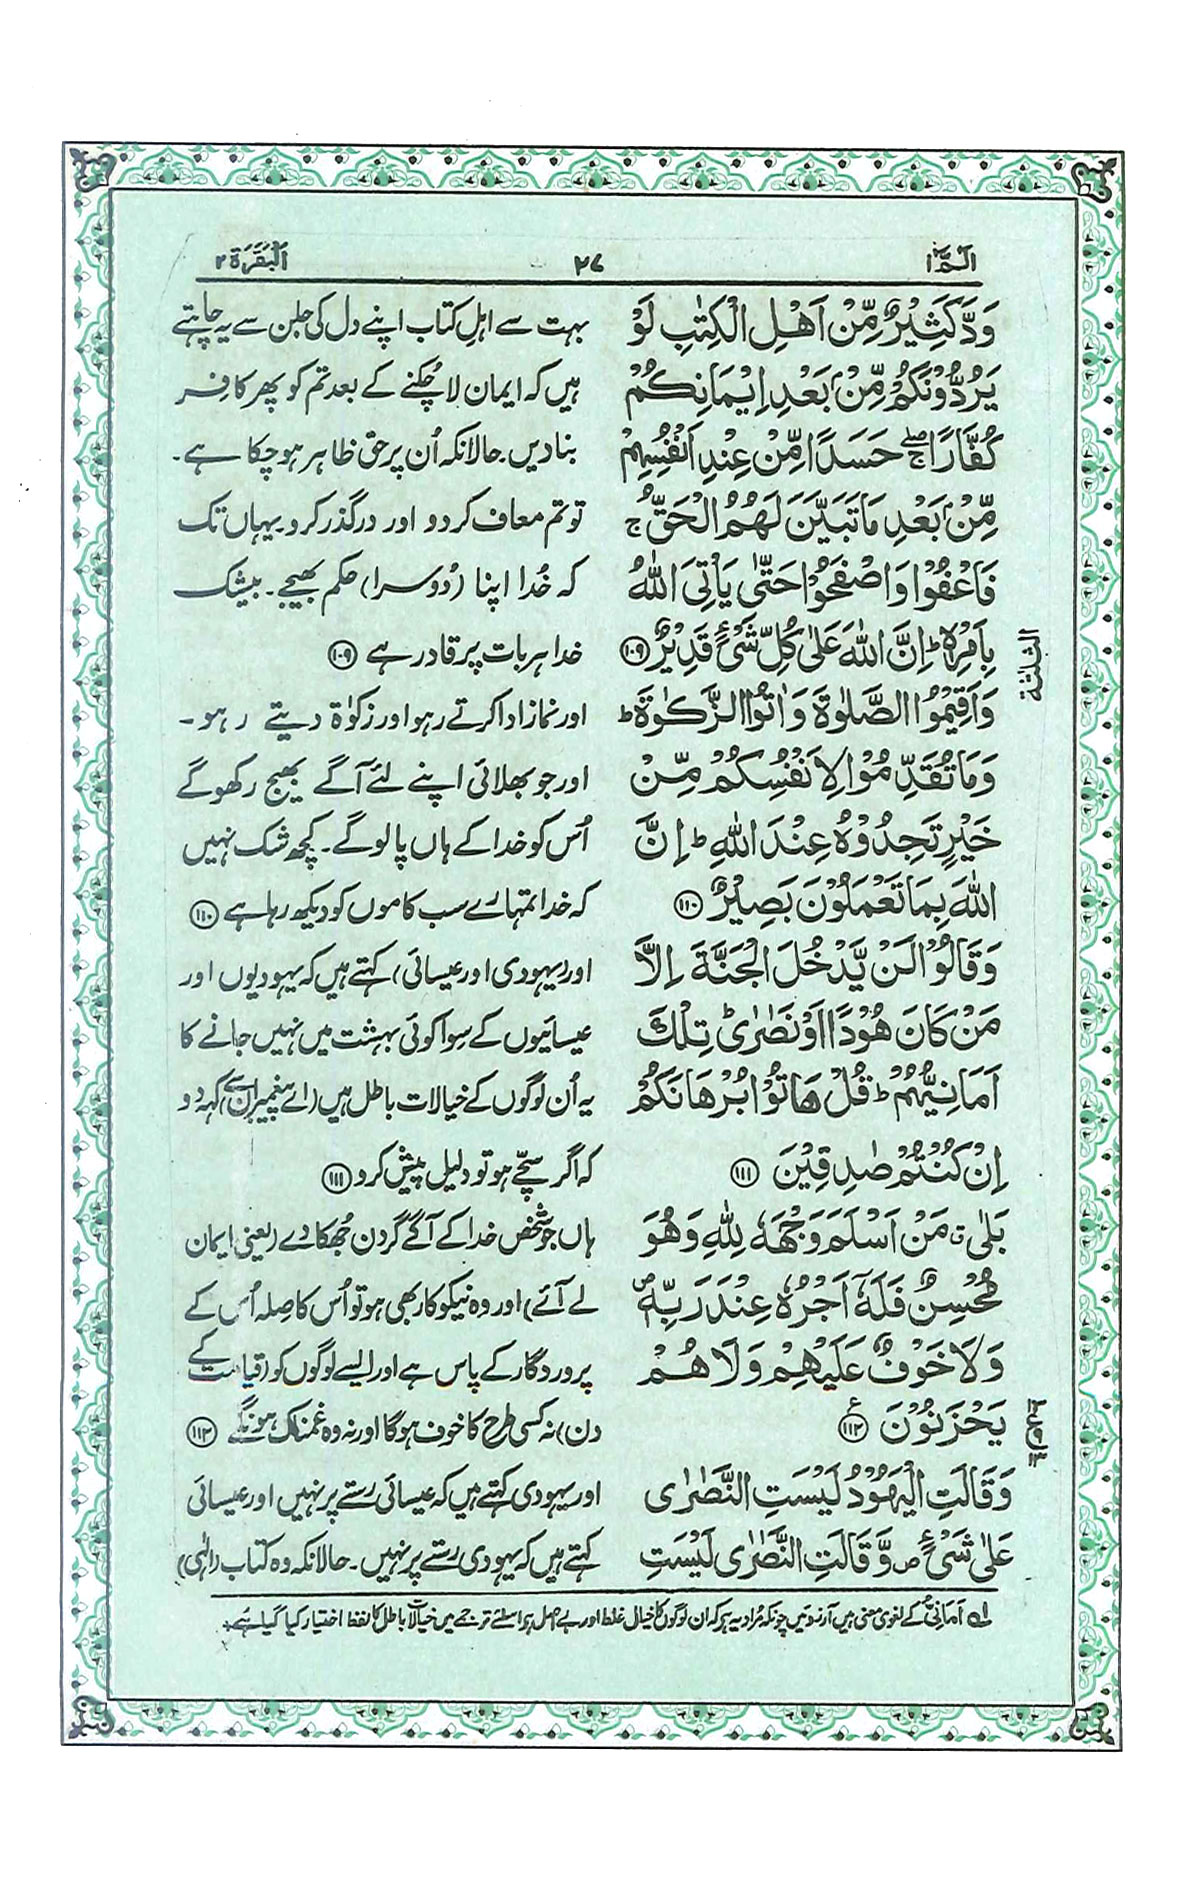 الٓمّٓ ۱
۲۷
اَلْبَقَرَة ۲
وَدَّ كَثِيْرٌ مِّنْ اَهْلِ الْكِتٰبِ لَوْ
يَرُدُّوْنَكُمْ مِّنْۢ بَعْدِ اِيْمَانِكُمْ
كُفَّارًا ۖۚ حَسَدًا مِّنْ عِنْدِ اَنْفُسِهِمْ
مِّنْۢ بَعْدِ مَا تَبَيَّنَ لَهُمُ الْحَقُّ ۚ
فَاعْفُوْا وَاصْفَحُوْا حَتّٰى يَاْتِيَ اللّٰهُ
بِاَمْرِهٖ ؕ اِنَّ اللّٰهَ عَلٰى كُلِّ شَيْءٍ قَدِيْرٌ ﴿۱۰۹﴾
وَاَقِيْمُوا الصَّلٰوةَ وَاٰتُوا الزَّكٰوةَ ؕ
وَمَا تُقَدِّمُوْا لِاَنْفُسِكُمْ مِّنْ
خَيْرٍ تَجِدُوْهُ عِنْدَ اللّٰهِ ؕ اِنَّ
اللّٰهَ بِمَا تَعْمَلُوْنَ بَصِيْرٌ ﴿۱۱۰﴾
وَقَالُوْا لَنْ يَّدْخُلَ الْجَنَّةَ اِلَّا
مَنْ كَانَ هُوْدًا اَوْ نَصٰرٰى ؕ تِلْكَ
اَمَانِيُّهُمْ ؕ قُلْ هَاتُوْا بُرْهَانَكُمْ
اِنْ كُنْتُمْ صٰدِقِيْنَ ﴿۱۱۱﴾
بَلٰى ۤ مَنْ اَسْلَمَ وَجْهَهٗ لِلّٰهِ وَهُوَ
مُحْسِنٌ فَلَهٗٓ اَجْرُهٗ عِنْدَ رَبِّهٖ ۪
وَلَا خَوْفٌ عَلَيْهِمْ وَلَا هُمْ
يَحْزَنُوْنَ ﴿۱۱۲﴾ ع
وَقَالَتِ الْيَهُوْدُ لَيْسَتِ النَّصٰرٰى
عَلٰى شَيْءٍ ۪ وَّقَالَتِ النَّصٰرٰى لَيْسَتِ
بہت سے اہلِ کتاب اپنے دل کی جلن سے یہ چاہتے
ہیں کہ ایمان لا چُکنے کے بعد تم کو پھر کافِر
بنادیں۔ حالانکہ اُن پر حق ظاہر ہوچکا ہے۔
تو تم معاف کردو اور درگذر کرو۔ یہاں تک
کہ خُدا اپنا (دُوسرا) حکم بھیجے۔ بیشک
خدا ہر بات پر قادر ہے ﴿۱۰۹﴾
اور نماز ادا کرتے رہو اور زکوٰۃ دیتے رہو۔
اور جو بھلائی اپنے لئے آگے بھیج رکھو گے
اُس کو خدا کے ہاں پالو گے۔ کچھ شک نہیں
کہ خدا تمہارے سب کاموں کو دیکھ رہا ہے ﴿۱۱۰﴾
اور (یہودی اور عیسائی) کہتے ہیں کہ یہودیوں اور
عیسائیوں کے سِوا کوئی بہشت میں نہیں جانے کا
یہ اُن لوگوں کے خیالات باطل ہیں (اے پیغمبر ان سے) کہہ دو
کہ اگر سچّے ہو تو دلیل پیش کرو ﴿۱۱۱﴾
ہاں جو شخص خدا کے آگے گردن جُھکا دے (یعنی ایمان
لے آئے) اور وہ نیکوکار بھی ہو تو اُس کا صِلہ اُس کے
پروردگار کے پاس ہے اور ایسے لوگوں کو (قیامت کے
دن) نہ کسی طرح کا خوف ہوگا اور نہ وہ غمناک ہونگے ﴿۱۱۲﴾
اور یہودی کہتے ہیں کہ عیسائی رستے پر نہیں اور عیسائی
کہتے ہیں کہ یہودی رستے پر نہیں۔ حالانکہ وہ کتاب (الٰہی)
الثلٰثة
لے اَمَانِیّ کے لغوی معنی ہیں آرزوئیں چونکہ مُراد یہ ہے کہ ان لوگوں کا خیال غلط اور بے اصل ہے اسلئے ترجمے میں خیالات باطل کا لفظ اختیار کیا گیا ہے۔